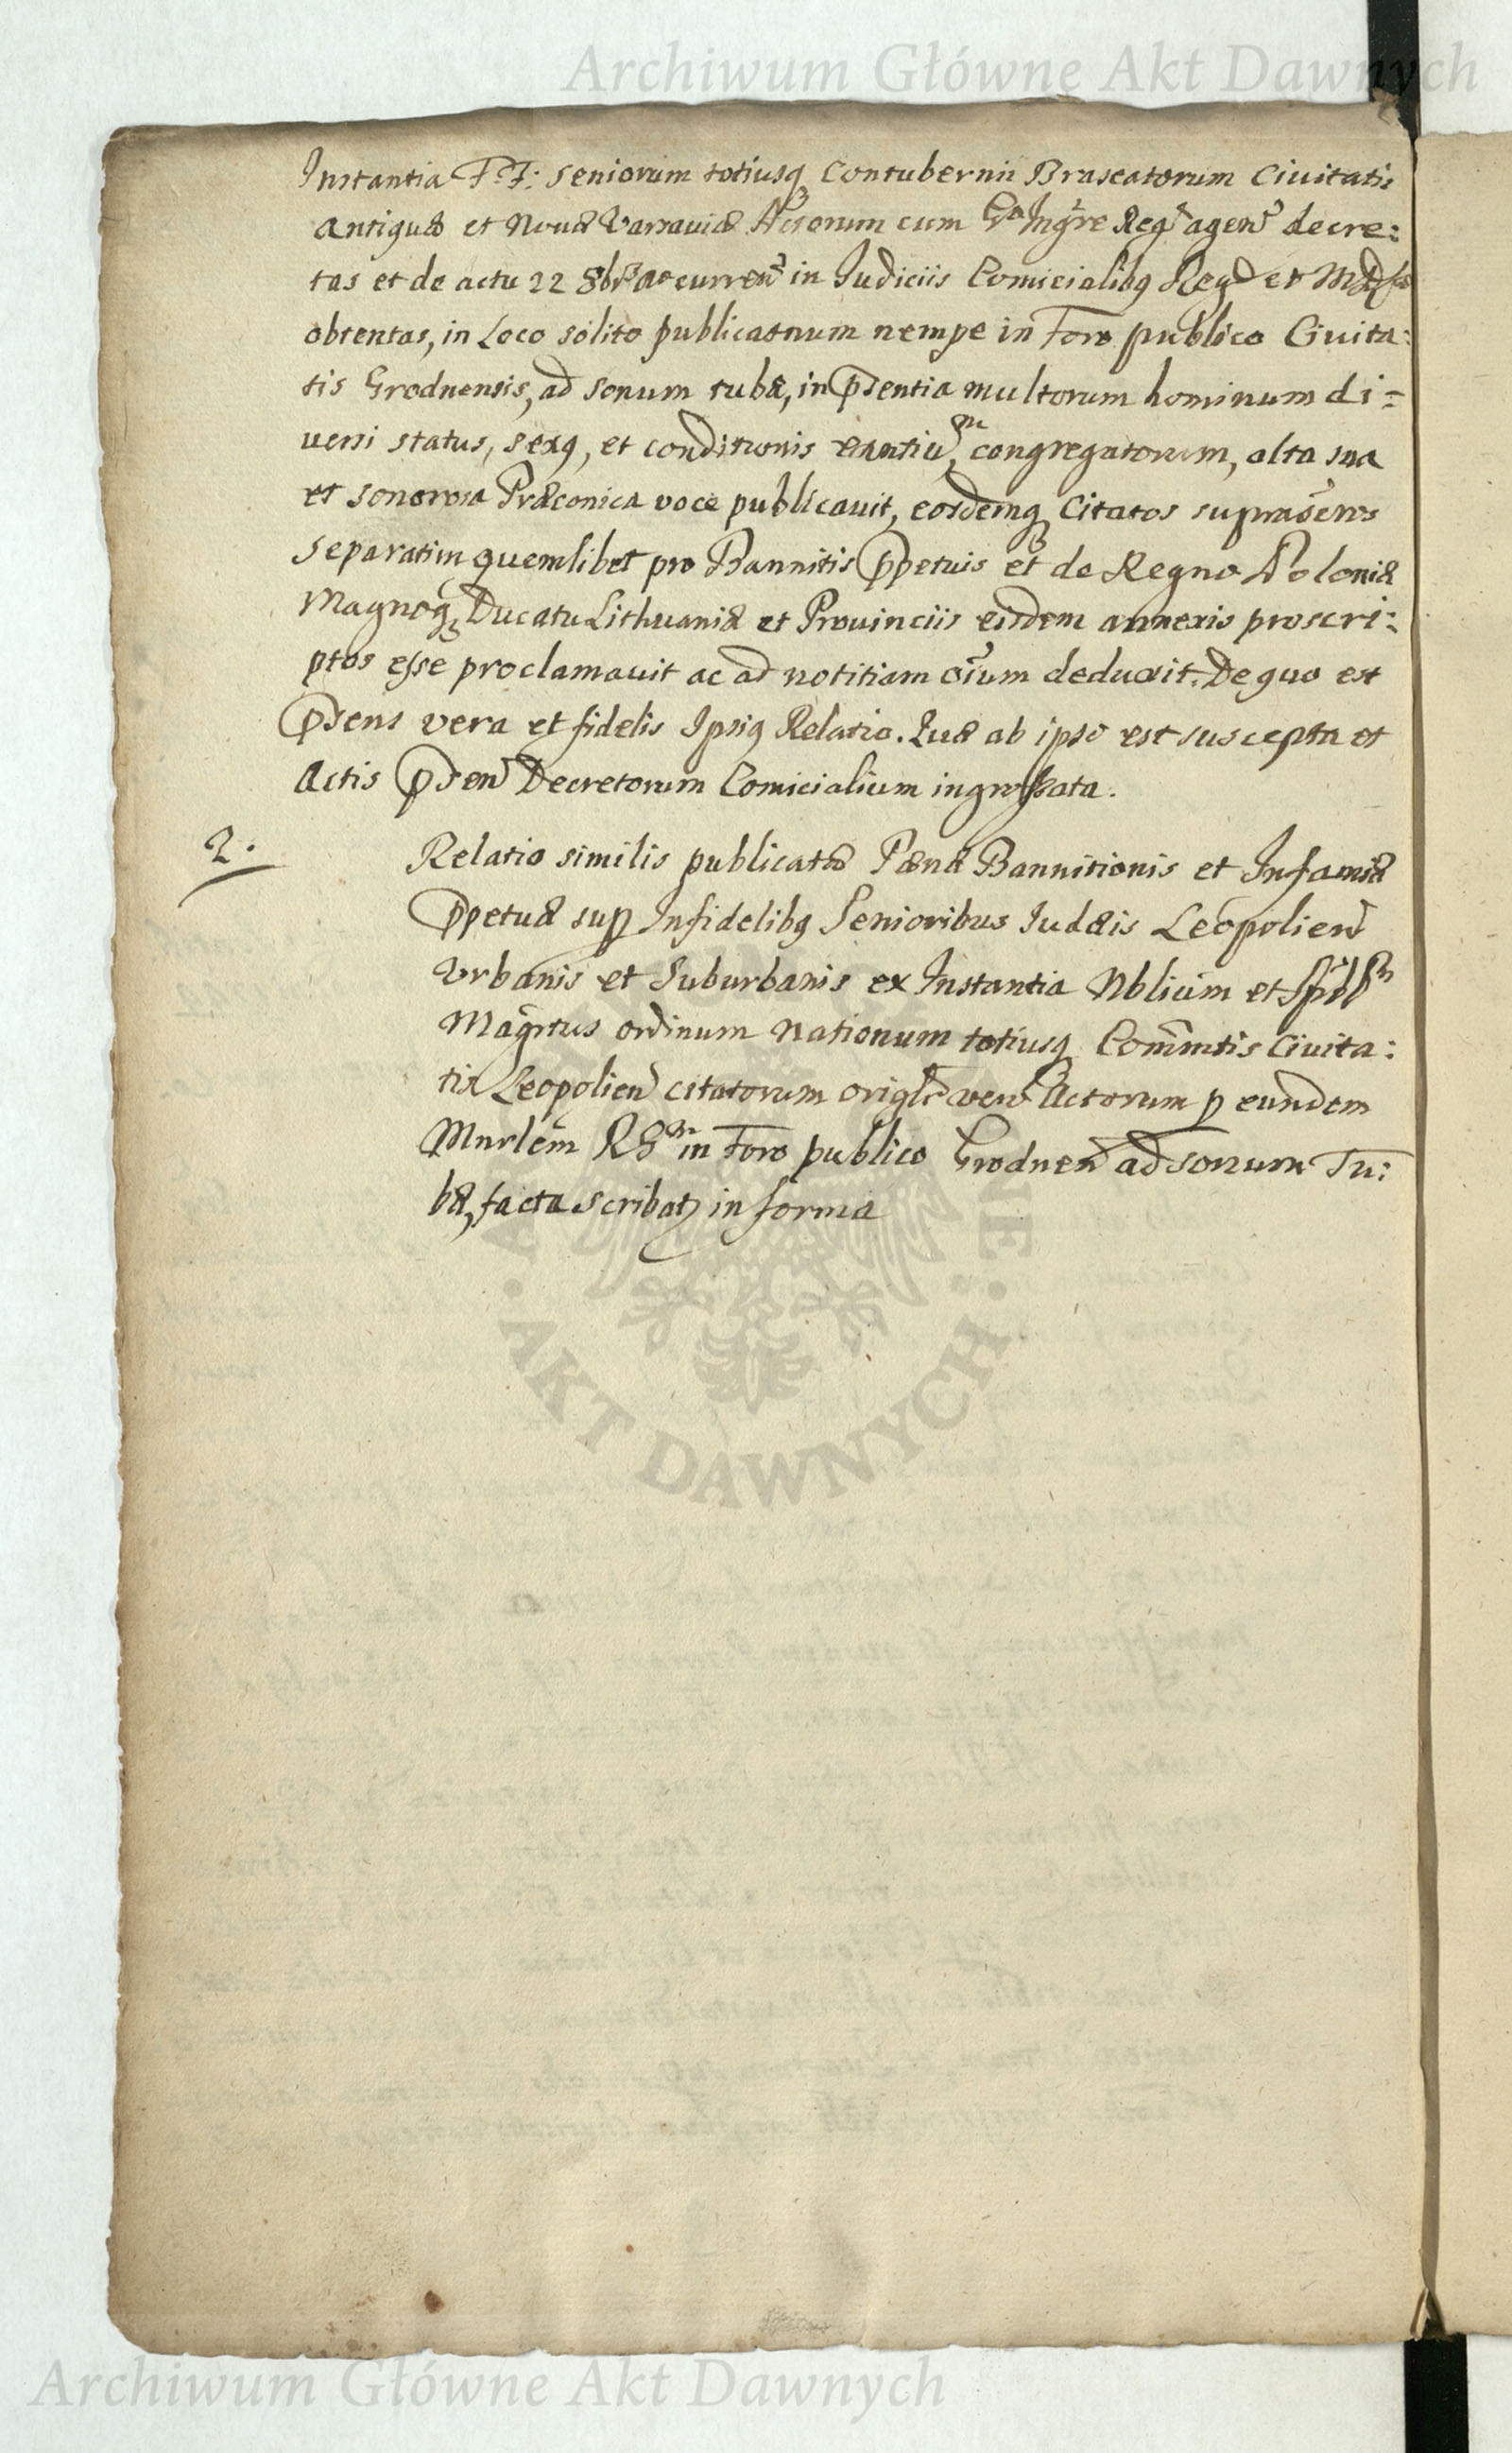 Archiwum Główne Akt Dawnych
Instantia F.F: Seniorum totiusq Contubernii Braseatorum Ciuitatis
Antiquæ et Nouæ Varsauiæ Actorum cum Gñ Ingre Regt agen decre:
tas et de actu 22 8bris ao curren in Iudiciis Comicialibq Regd et
obtentas, in Loco solito publicaonum nempe in Foro publico Ciuita:
tis Grodnensis, ad sonum tubæ, in pñsentia multorum hominum di=
uersi status, sexq, et conditionis congregatorum, alta sua
et sonorosa Præconica voce publicauit, eosdemq Citatos suprascros
separatim quemlibet pro Bannitis ppetuis et de Regno Poloniæ
Magnoq Ducatu Lithuaniæ et Prouinciis eisdem annexis proscri:
ptos esse proclamauit ac ad notitiam oium deduxit. De quo est
pñsens vera et fidelis Ipsiq Relatio. Quæ ab ipso est suscepta et
Actis pñsen Decretorum Comicialium ingrossata.
2. Relatio similis publicatæ Pœnæ Bannitionis et Infamiæ
ppetuæ sup Infidelibq Senioribus Iudæis Leopolien
Vrbanis et Suburbanis ex Instantia Nblium et Splm
Magrtus ordinum nationum totiusq Commtis Ciuita:
tis Leopolien citatorum origle ven Actorum p eundem
Mnrlem RGm in Foro publico Grodnen ad sonum Tu:
bæ, facta scribatz in forma
AKT DAWNYCH
Archiwum Główne Akt Dawnych